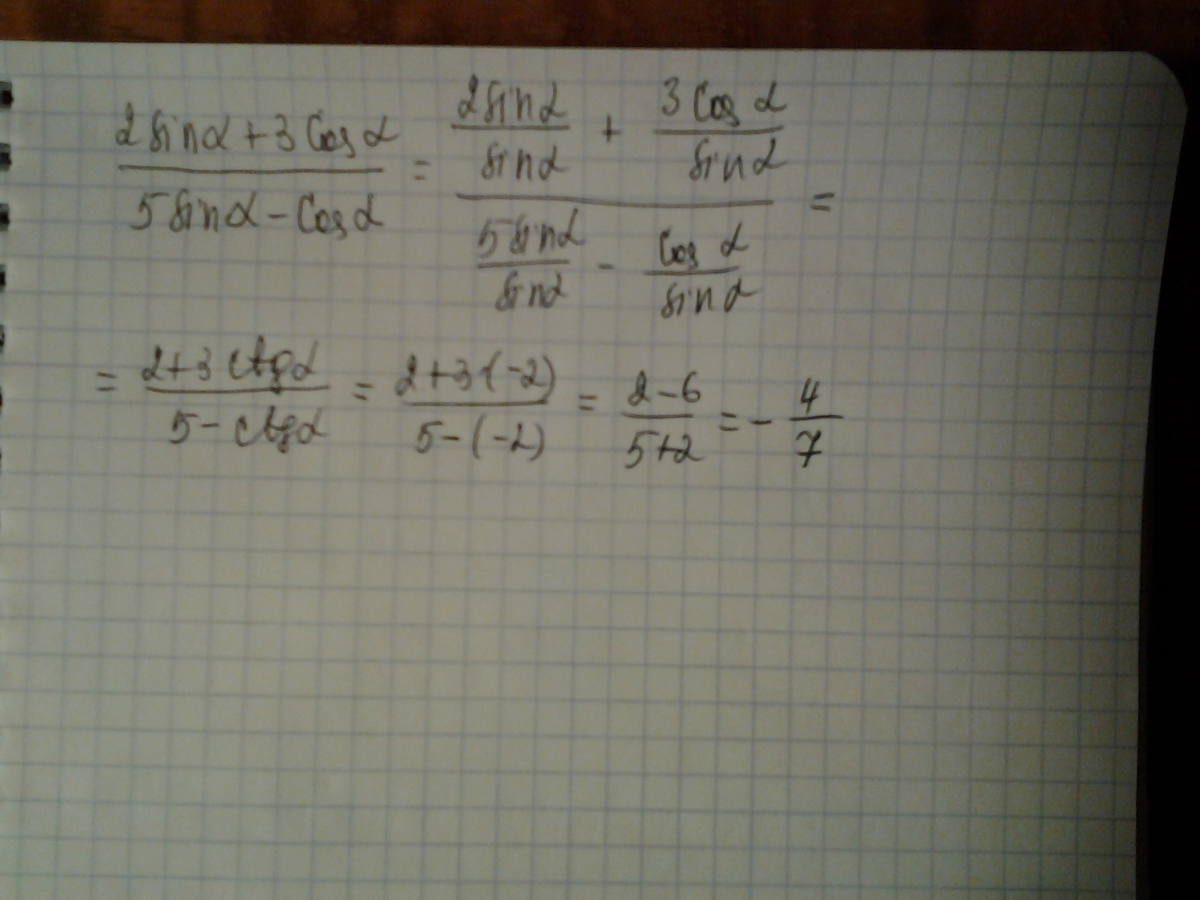 (2 sin α + 3 cos α)/(5 sin α - cos α) = ((2 sin α)/(sin α) + (3 cos α)/(sin α))/((5 sin α)/(sin α) - (cos α)/(sin α)) =
= (2+3 ctg α)/(5 - ctg α) = (2+3·(-2))/(5-(-2)) = (2-6)/(5+2) = - 4/7